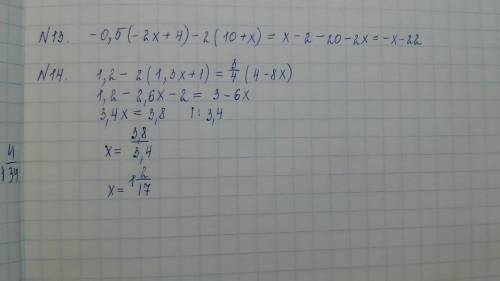 N13. -0,5(-2x+4)-2(10+x)=x-2-20-2x=-x-22
N14. 1,2-2(1,3x+1)=3/4(4-8x)
1,2-2,6x-2=3-6x
3,4x=3,8 |:3,4
x=3,8/3,4
x=1 2/17
1 4/34